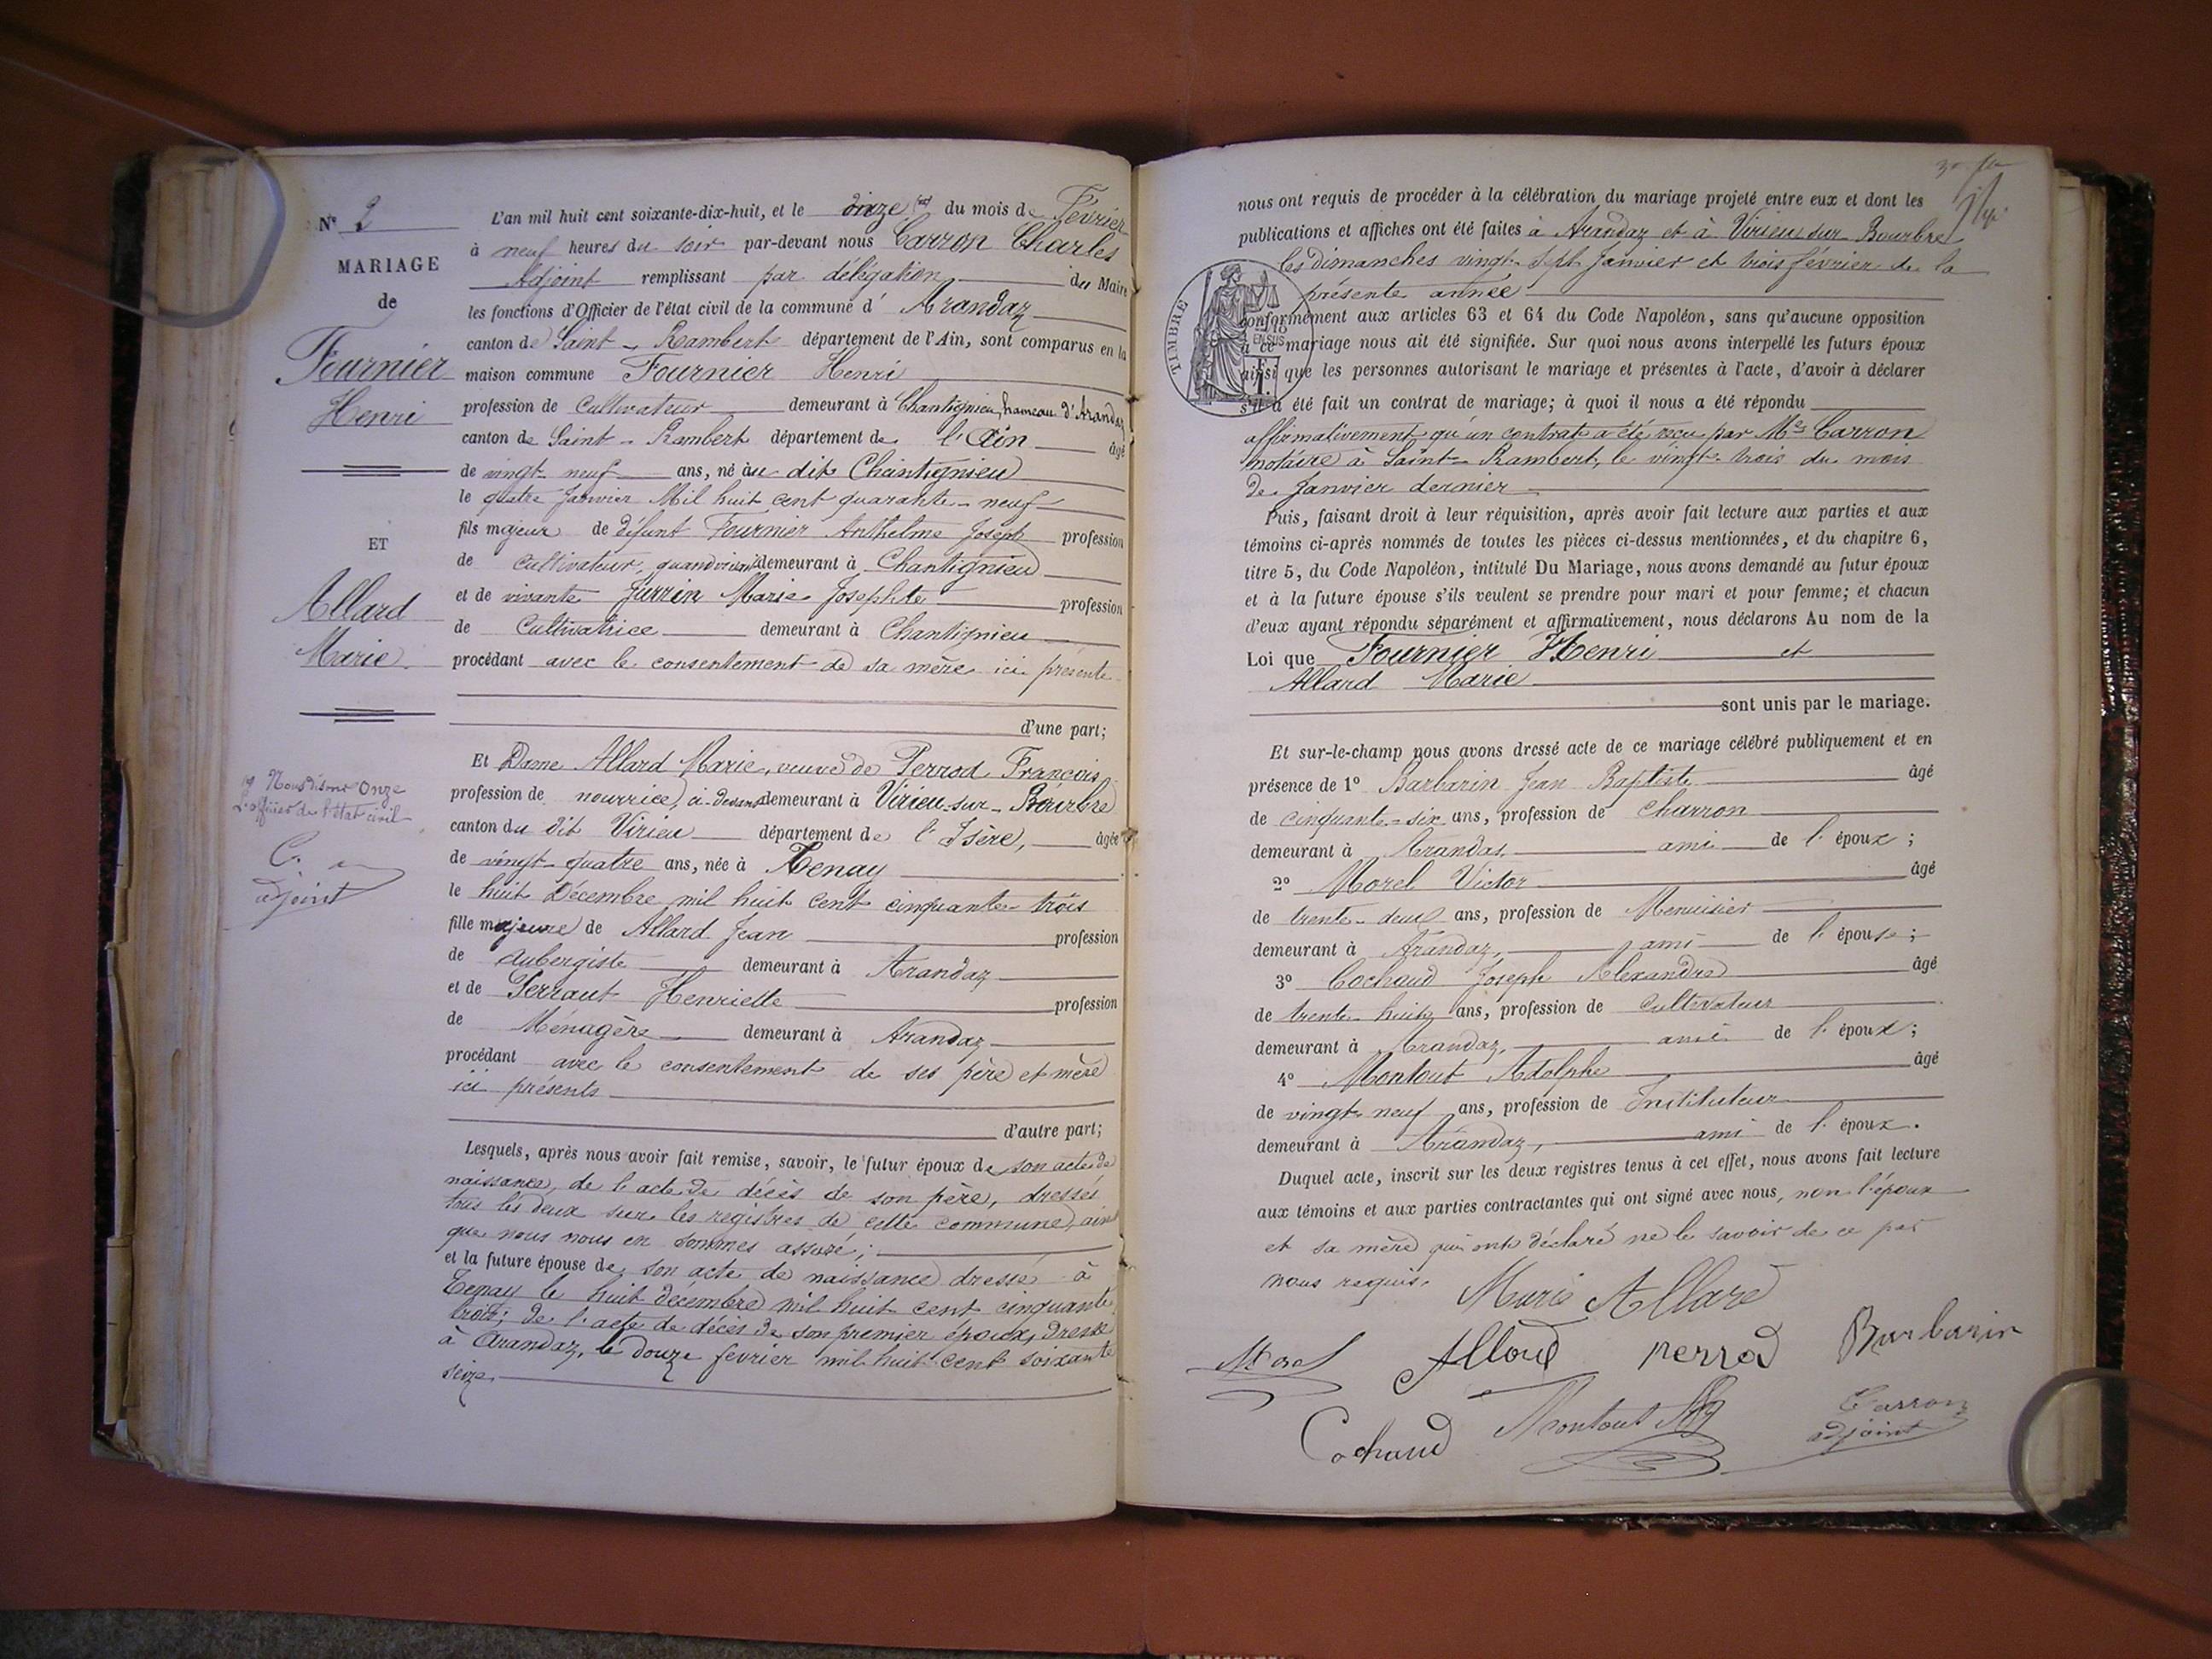 N° 2
MARIAGE
de
Fournier
Henri
ET
Allard
Marie
Nous disons Onze
L'officier de l'état civil
adjoint
L'an mil huit cent soixante-dix-huit, et le onze du mois de Février
à neuf heures du soir par-devant nous Carron Charles
Adjoint remplissant par délégation du Maire
les fonctions d'Officier de l'état civil de la commune d' Arandaz
canton de Saint-Rambert département de l'Ain, sont comparus en la
maison commune Fournier Henri
profession de cultivateur demeurant à Chantignieu, hameau d'Arandaz
canton de Saint-Rambert département de l'Ain âgé
de vingt-neuf ans, né au dit Chantignieu
le quatre Janvier Mil huit cent quarante-neuf
fils majeur de défunt Fournier Anthelme Joseph profession
de cultivateur, quand vivant demeurant à Chantignieu
et de vivante Jurrin Marie Josephte profession
de Cultivatrice demeurant à Chantignieu
procédant avec le consentement de sa mère ici présente
d'une part;
Et Dame Allard Marie, veuve de Perrod François
profession de nourrice, ci-devant demeurant à Virieu-sur-Bourbre
canton du dit Virieu département de l'Isère, âgée
de vingt-quatre ans, née à Tenay
le huit Décembre mil huit cent cinquante-trois
fille majeure de Allard Jean profession
de Aubergiste demeurant à Arandaz
et de Perraut Henriette profession
de Ménagère demeurant à Arandaz
procédant avec le consentement de ses père et mère
ici présents
d'autre part;
Lesquels, après nous avoir fait remise, savoir, le futur époux de son acte de
naissance, de l'acte de décès de son père, dressés
tous les deux sur les registres de cette commune, ainsi
que nous nous en sommes assuré;
et la future épouse de son acte de naissance dressé à
Tenay le huit décembre mil huit cent cinquante
trois; de l'acte de décès de son premier époux, dressé
à Arandaz, le douze février mil huit cent soixante
seize
nous ont requis de procéder à la célébration du mariage projeté entre eux et dont les
publications et affiches ont été faites à Arandaz et à Virieu-sur-Bourbre
les dimanches vingt-sept Janvier et trois février de la
présente année
TIMBRE
conformément aux articles 63 et 64 du Code Napoléon, sans qu'aucune opposition
à ce mariage nous ait été signifiée. Sur quoi nous avons interpellé les futurs époux
EN SUS
ainsi que les personnes autorisant le mariage et présentes à l'acte, d'avoir à déclarer
s'il a été fait un contrat de mariage; à quoi il nous a été répondu
affirmativement qu'un contrat a été reçu par Me Carron
notaire à Saint-Rambert, le vingt-trois du mois
de Janvier dernier
Puis, faisant droit à leur réquisition, après avoir fait lecture aux parties et aux
témoins ci-après nommés de toutes les pièces ci-dessus mentionnées, et du chapitre 6,
titre 5, du Code Napoléon, intitulé Du Mariage, nous avons demandé au futur époux
et à la future épouse s'ils veulent se prendre pour mari et pour femme; et chacun
d'eux ayant répondu séparément et affirmativement, nous déclarons Au nom de la
Loi que Fournier Henri et
Allard Marie
sont unis par le mariage.
Et sur-le-champ nous avons dressé acte de ce mariage célébré publiquement et en
présence de 1° Barbarin Jean Baptiste âgé
de cinquante-six ans, profession de charron
demeurant à Arandas, ami de l'époux;
2° Morel Victor âgé
de trente-deux ans, profession de Menuisier
demeurant à Arandaz, ami de l'épouse;
3° Cochaud Joseph Alexandre âgé
de trente-huit ans, profession de cultivateur
demeurant à Arandaz, ami de l'époux;
4° Montout Adolphe âgé
de vingt-neuf ans, profession de Instituteur
demeurant à Arandaz, ami de l'époux.
Duquel acte, inscrit sur les deux registres tenus à cet effet, nous avons fait lecture
aux témoins et aux parties contractantes qui ont signé avec nous, non l'époux
et sa mère qui ont déclaré ne le savoir de ce par
nous requis.
Marie Allard
Morel Allard perrod Barbarin
Cochaud Montout Carron
adjoint